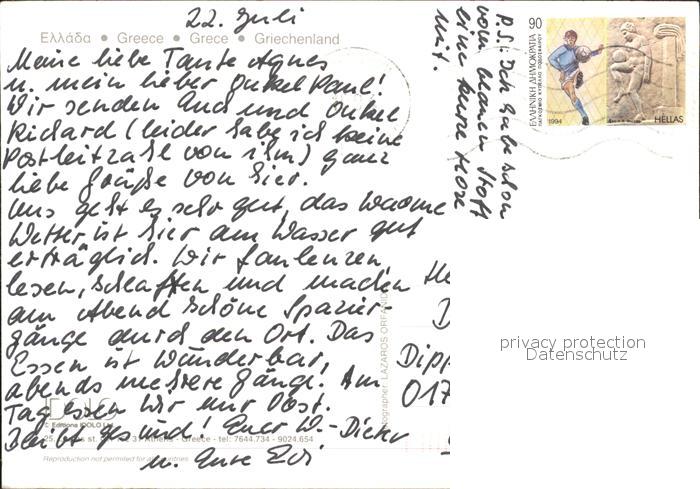 22. Juli
Ελλάδα • Greece • Grece • Griechenland
Meine liebe Tante Agnes
u. mein lieber Onkel Paul!
Wir senden Euch und Onkel
Richard (leider habe ich keine
Postleitzahl von ihm) ganz
liebe Grüße von hier.
Uns geht es sehr gut, das warme
Wetter ist hier am Wasser gut
erträglich. Wir faulenzen,
lesen, schlaffen und machen
am Abend schöne Spazier-
gänge durch den Ort. Das
Essen ist wunderbar,
abends mehrere Gänge. Am
Tag essen wir nur Obst.
Bleibt gesund! Euer W.-Dieter
u. Eure Edi
P.S: Ich habe schon
vom blauen Stoff
eine kurze Hose
mit.
90
ΕΛΛΗΝΙΚΗ ΔΗΜΟΚΡΑΤΙΑ
ΠΑΓΚΟΣΜΙΟ ΚΥΠΕΛΛΟ ΠΟΔΟΣΦΑΙΡΟΥ
1994
HELLAS
He
D
Dipp
017
privacy protection
Datenschutz
Photographer: LAZAROS ORFANID
© Editions IDOLO Ltd
st. 31 Athens - Greece - tel: 7644.734 - 9024.654
Reproduction not permited for all countries